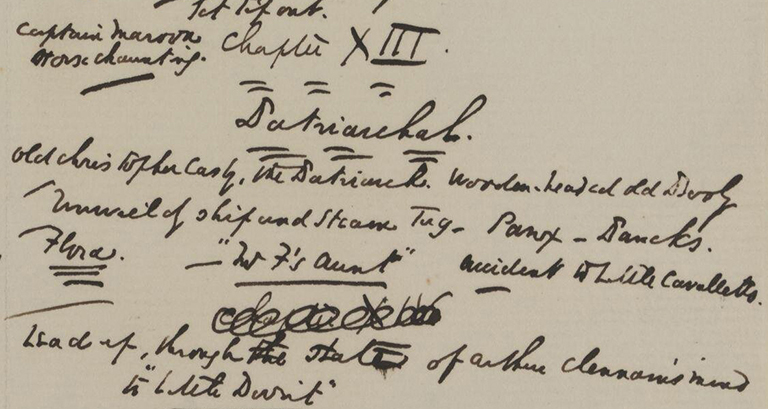 let Tip out.
Captain Maroon Chapter XIII.
Horse chaunting.
Patriarchal.
old Christopher Casby, the Patriarch. Wooden-headed old Booby
Unwieldy ship and Steam Tug - - Pancks.
Flora. — "Mr F's Aunt" accident to little Cavalletto.
Lead up, through the state of Arthur Clennam's mind
to "Little Dorrit"